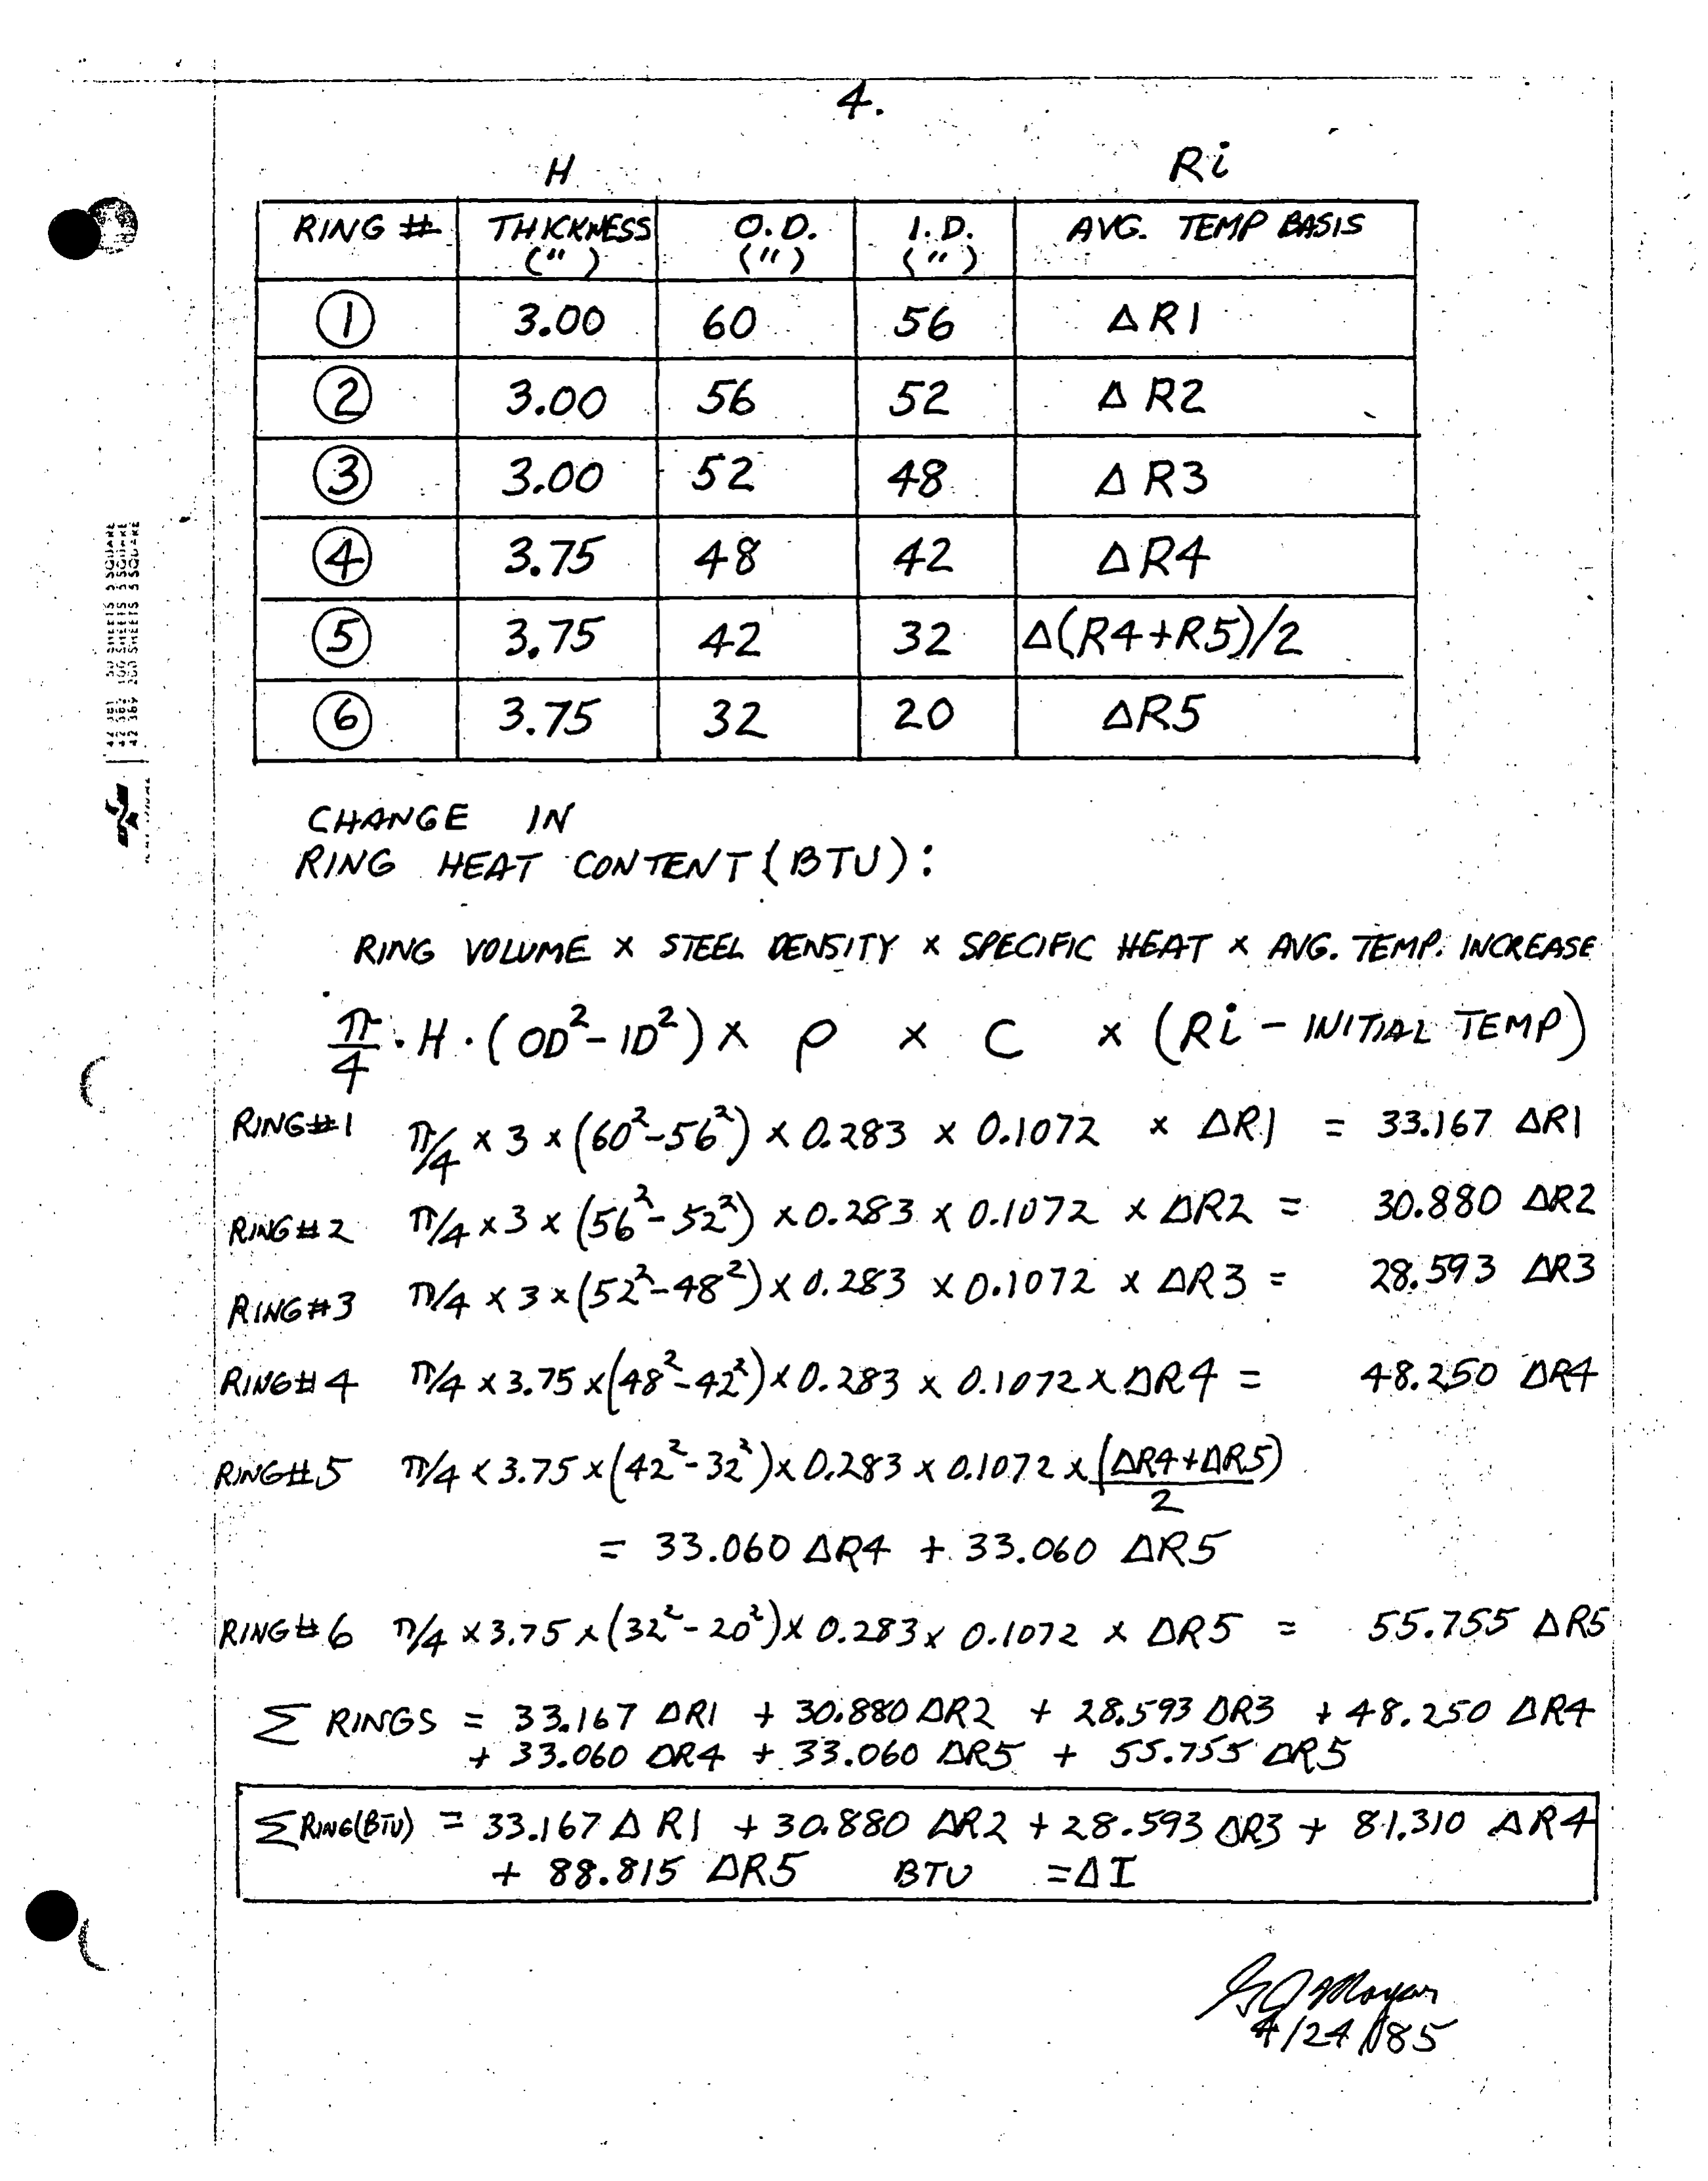 4.
H Ri
RING # THICKNESS O.D. I.D. AVG. TEMP BASIS
(") (") (")
1 3.00 60 56 Δ R1
2 3.00 56 52 Δ R2
3 3.00 52 48 Δ R3
4 3.75 48 42 Δ R4
5 3.75 42 32 Δ(R4+R5)/2
6 3.75 32 20 ΔR5
CHANGE IN
RING HEAT CONTENT (BTU):
RING VOLUME x STEEL DENSITY x SPECIFIC HEAT x AVG. TEMP. INCREASE
π/4 · H · (OD²-ID²) x ρ x C x (Ri - INITIAL TEMP)
RING#1 π/4 x 3 x (60²-56²) x 0.283 x 0.1072 x ΔR1 = 33.167 ΔR1
RING#2 π/4 x 3 x (56²-52²) x 0.283 x 0.1072 x ΔR2 = 30.880 ΔR2
RING#3 π/4 x 3 x (52²-48²) x 0.283 x 0.1072 x ΔR3 = 28.593 ΔR3
RING#4 π/4 x 3.75 x (48²-42²) x 0.283 x 0.1072 x ΔR4 = 48.250 ΔR4
RING#5 π/4 x 3.75 x (42²-32²) x 0.283 x 0.1072 x (ΔR4+ΔR5)/2
= 33.060 ΔR4 + 33.060 ΔR5
RING#6 π/4 x 3.75 x (32²-20²) x 0.283 x 0.1072 x ΔR5 = 55.755 ΔR5
Σ RINGS = 33.167 ΔR1 + 30.880 ΔR2 + 28.593 ΔR3 + 48.250 ΔR4
+ 33.060 ΔR4 + 33.060 ΔR5 + 55.755 ΔR5
Σ RING(BTU) = 33.167 Δ R1 + 30.880 ΔR2 + 28.593 ΔR3 + 81.310 ΔR4
+ 88.815 ΔR5 BTU = ΔI
4/24/85